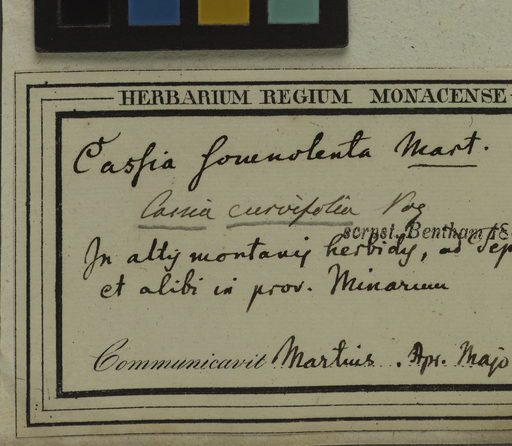 HERBARIUM REGIUM MONACENSE
Cassia Mart.
Cassia curvifolia Vog
scrpst. Bentham
In altis montanis herbidis, ad Tep
et alibi in prov. Minarum
Communicavit Martius. Apr. Majo